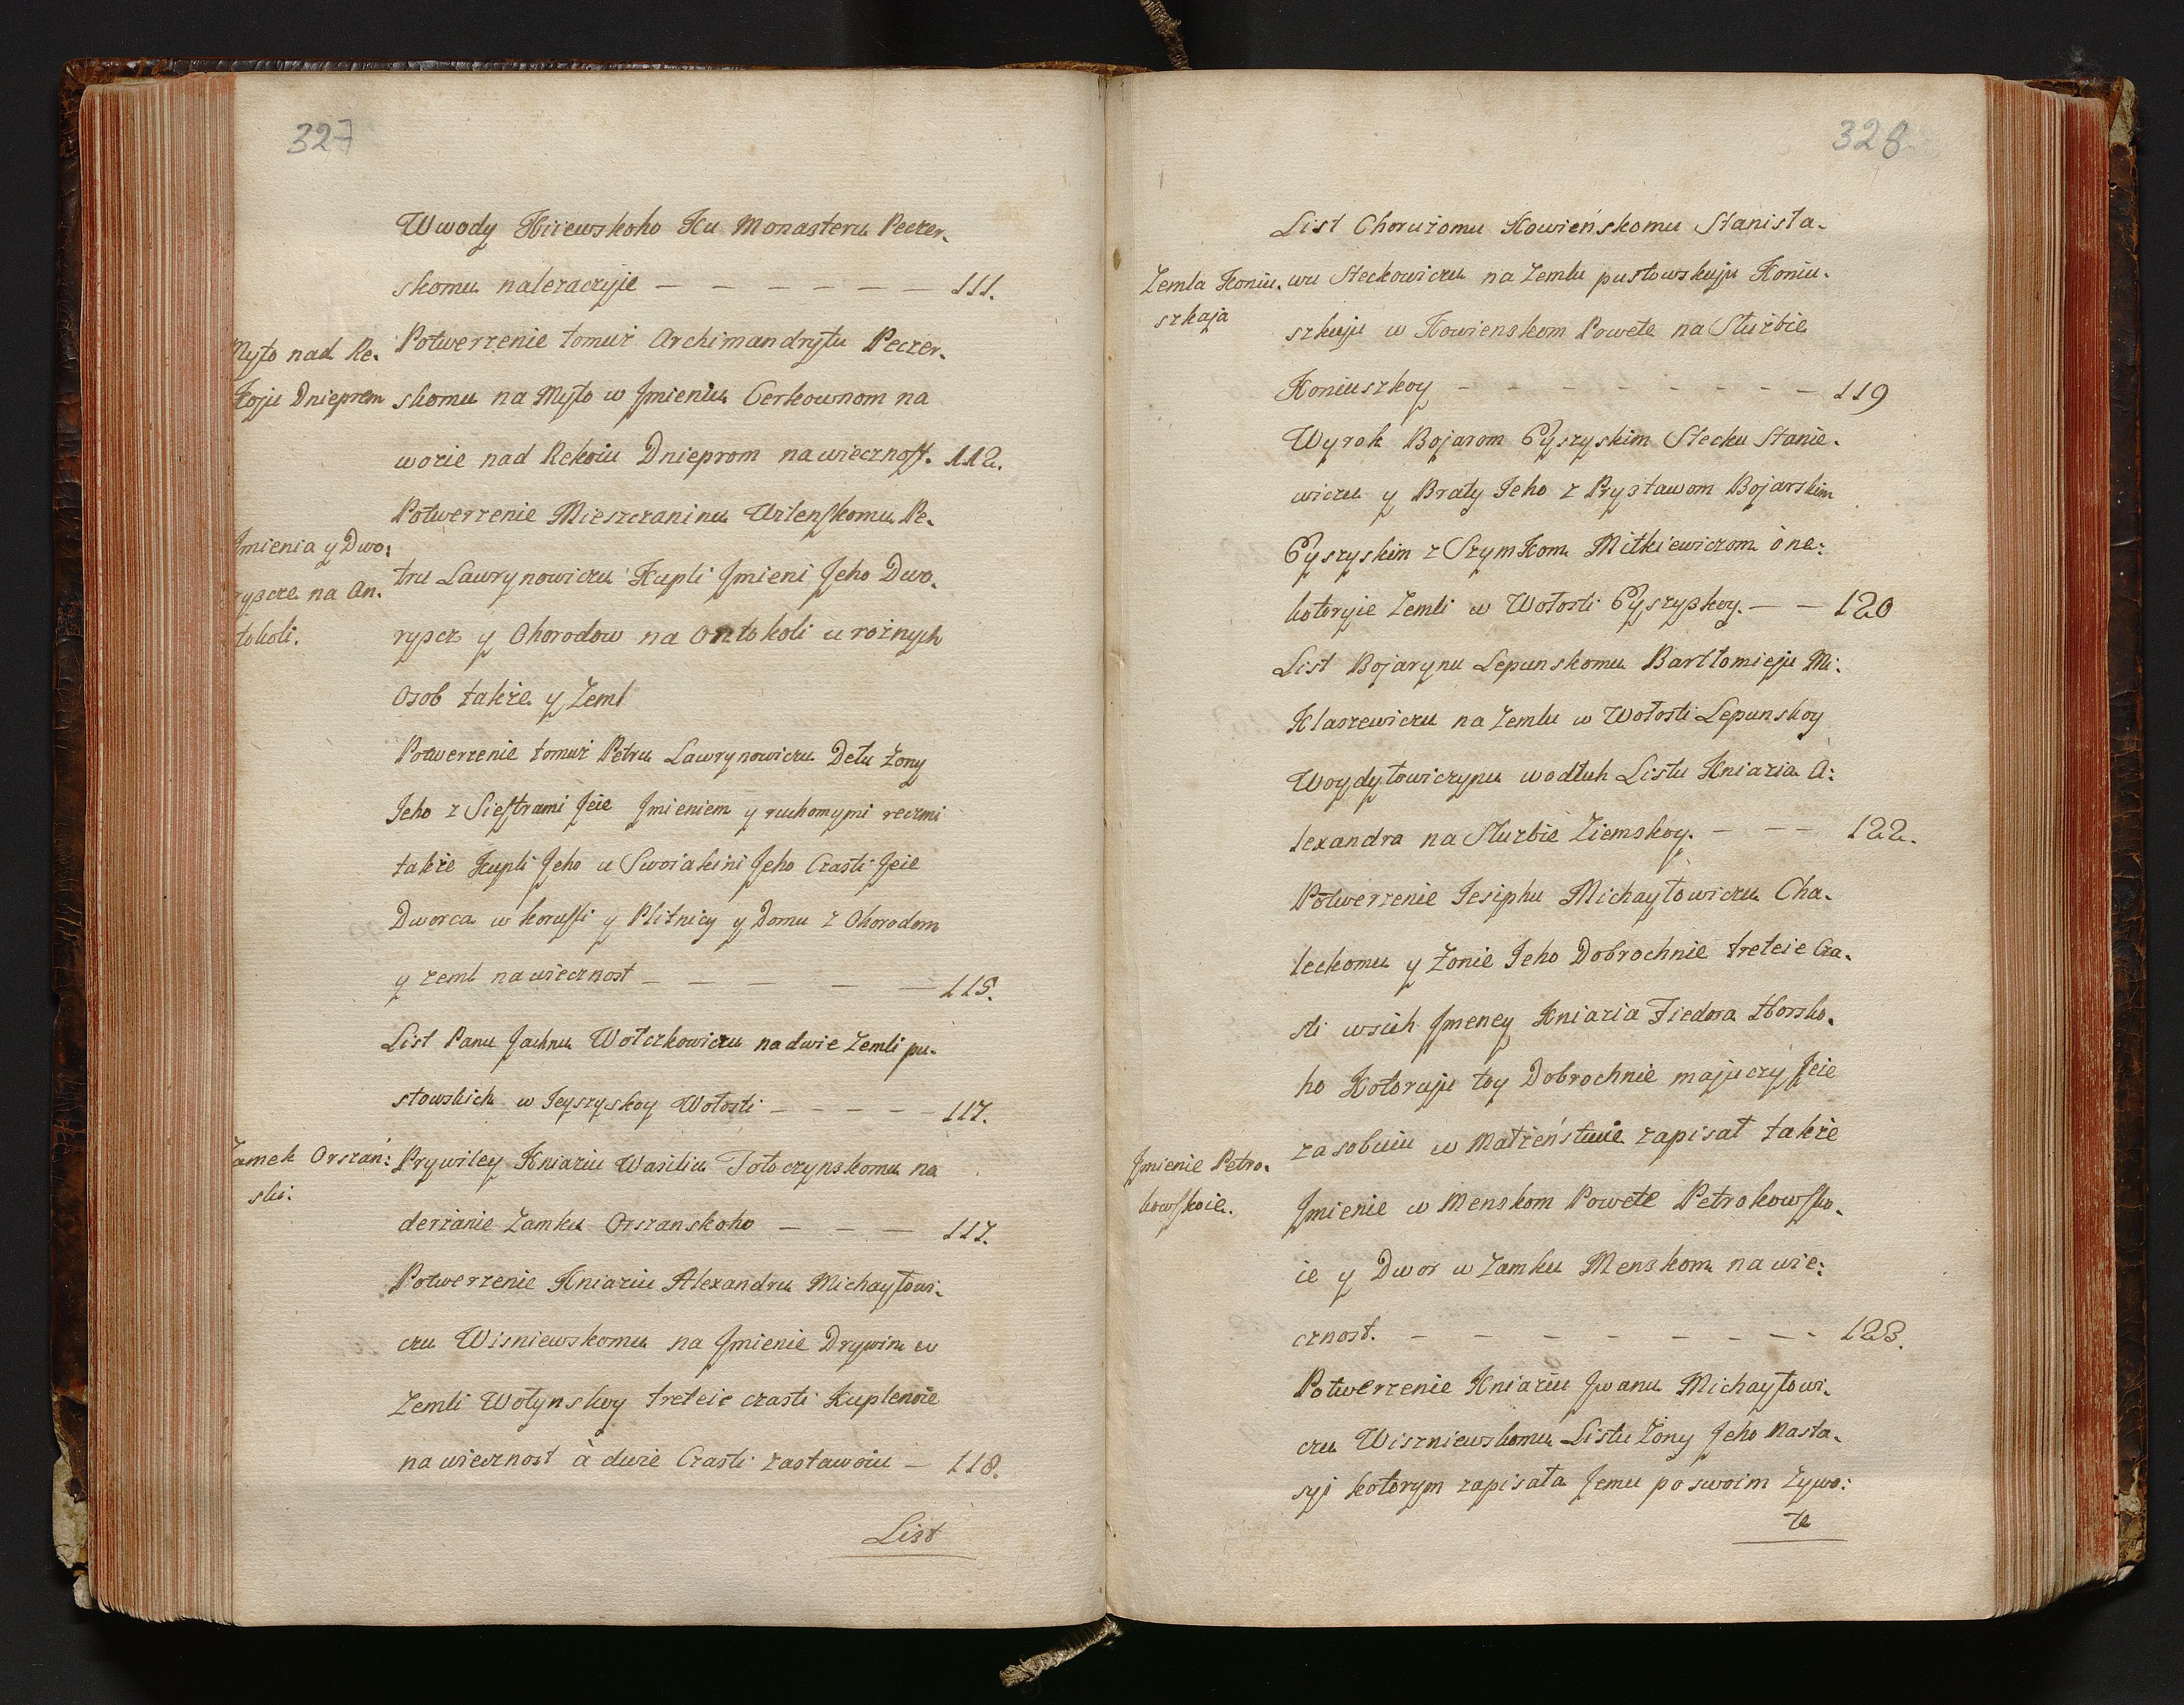 327
Wwody Kiiewskoho Ku Monasteru Peczer-
skomu nalezaczyje — — — — — — — 111.
Myto nad Re-
koju Dnieprem
Potwerzenie tomuż Archimandrytu Peczer-
skomu na Myto w Jmieniu Cerkownom na
wozie nad Rekoiu Dnieprom na wiecznost. 112.
Jmienia y Dwo:
ryszcze na An-
tokoli.
Potwerzenie Mieszczaninu Wilenskomu Pe-
tru Lawrynowiczu Kupli Jmieni Jeho Dwo-
ryscz y Ohorodow na Antokoli u rożnych
Osob także y Zeml
Potwerzenie tomuż Petru Lawrynowiczu Detu żony
Jeho z Siestrami Jeie Jmieniem y ruchomymi reczmi
także Kupli Jeho u Swoiakini Jeho Czasti Jeie
Dworca w korusli y Plitnicy y Domu z Ohorodom
y zeml na wiecznost — — — — — 115.
List Panu Jachnu Wołczkowiczu na dwie Zemli pu-
stowskich w Jeyszyskoy Wołosti — — — — — 117.
Zamek Orszań:
ski:
Prywiley Kniaziu Wasiliu Tołoczynskomu na
derżanie Zamku Orszanskoho — — — 117.
Potwerzenie Kniaziu Alexandru Michayłowi-
czu Wisniewskomu na Jmienie Drywin w
Zemli Wołynskoy treteie czasti Kuplenoie
na wiecznost à dwie Czasti zastawoiu — 118.
List
328
List Choružomu Kowieńskomu Stanisła-
Zemla Koniu-
szkaja
wu Steckowiczu na Zemlu pustowskuju Koniu-
szkuju w Kowienskom Powete na Służbie
Koniuszkoy — — — — — — — — 119
Wyrok Bojarom Eyszyskim Stecku Stanie-
wiczu y Braty Jeho z Prystawom Bojarskim
Eyszyskim z Szymkom Mitkiewiczom o ne:
kotoryie Zemli w Wołosti Eyszyskoy. — — 120
List Bojarynu Lepunskomu Bartłomieju Mi:
klaszewiczu na Zemlu w Wołosti Lepunskoy
Woydyłowiczynu wodłuh Listu Kniazia A:
lexandra na Służbie Ziemskoy. — — — 122.
Potwerzenie Jesiphu Michayłowiczu Cha-
leckomu y Żonie Jeho Dobrochnie treteie Cza-
sti wsich Jmeney Kniazia Fiedora Zborsko-
ho Kotoruju toy Dobrochnie majuczy Jeie
za soboiu w Małżeństwie zapisał także
Jmienie Petro-
kowskoie.
Jmienie w Menskom Powete Petrokowsko-
ie y Dwor w Zamku Menskom na wie:
cznost. — — — — — — — — 123.
Potwerzenie Kniaziu Jwanu Michayłowi-
czu Wiszniewskomu Listu Żony Jeho Nasta-
syi kotorym zapisała Jemu po swoim Zywo:
te